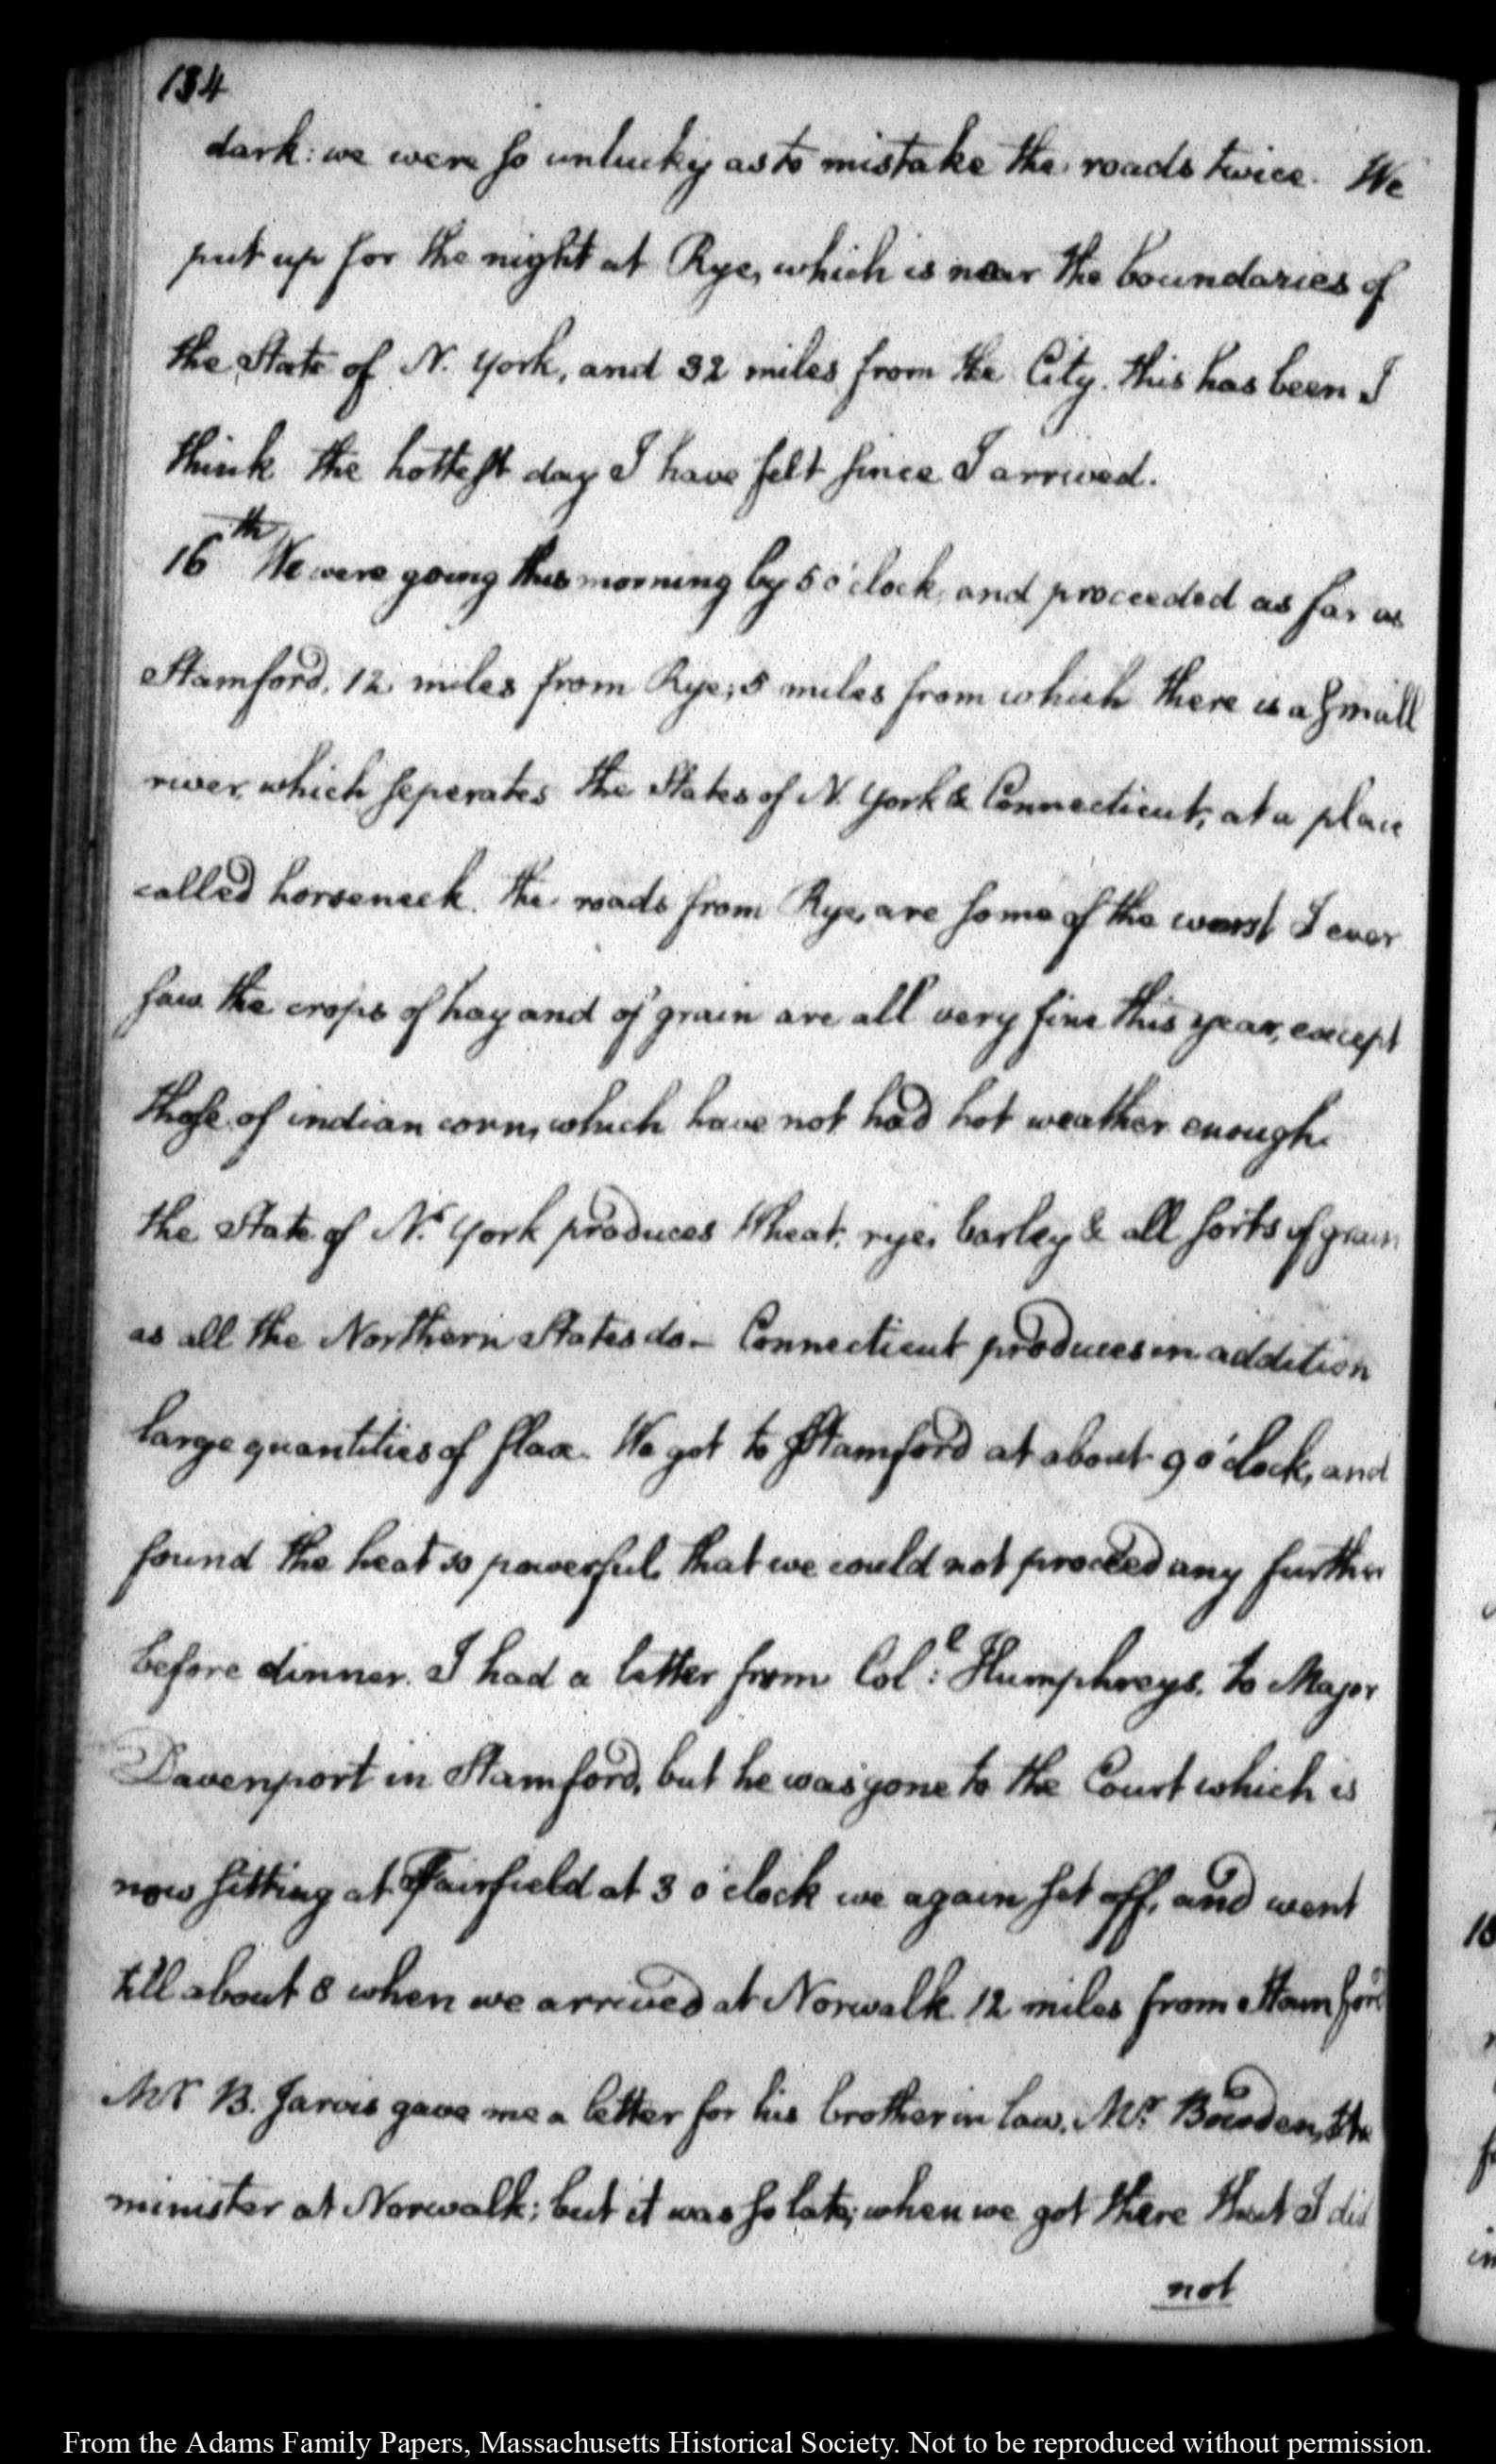 134
dark: we were so unlucky as to mistake the roads twice. We
put up for the night at Rye, which is near the boundaries of
the State of N. York, and 32 miles from the City. this has been I
think the hottest day I have felt since I arrived.
16th We were going this morning by 5 o'clock, and proceeded as far as
Stamford, 12 miles from Rye; 5 miles from which there is a small
river, which seperates the States of N. York & Connecticut, at a place
called horseneck. the roads from Rye, are some of the worst I ever
saw. the crops of hay and of grain are all very fine this year, except
those of indian corn, which have not had hot weather enough.
the State of N. York produces Wheat, rye, barley & all sorts of grain
as all the Northern States do— Connecticut produces in addition
large quantities of flax. We got to Stamford at about 9 o'clock, and
found the heat so powerful, that we could not proceed any further
before dinner. I had a letter from Col:l Humphreys, to Major
Davenport in Stamford, but he was gone to the Court which is
now sitting at Fairfield at 3 o'clock we again set off, and went
till about 8 when we arrived at Norwalk 12 miles from Stamford
Mr B. Jarvis gave me a letter for his brother in law, Mr. Bowden, the
minister at Norwalk; but it was so late, when we got there that I did
not
From the Adams Family Papers, Massachusetts Historical Society. Not to be reproduced without permission.